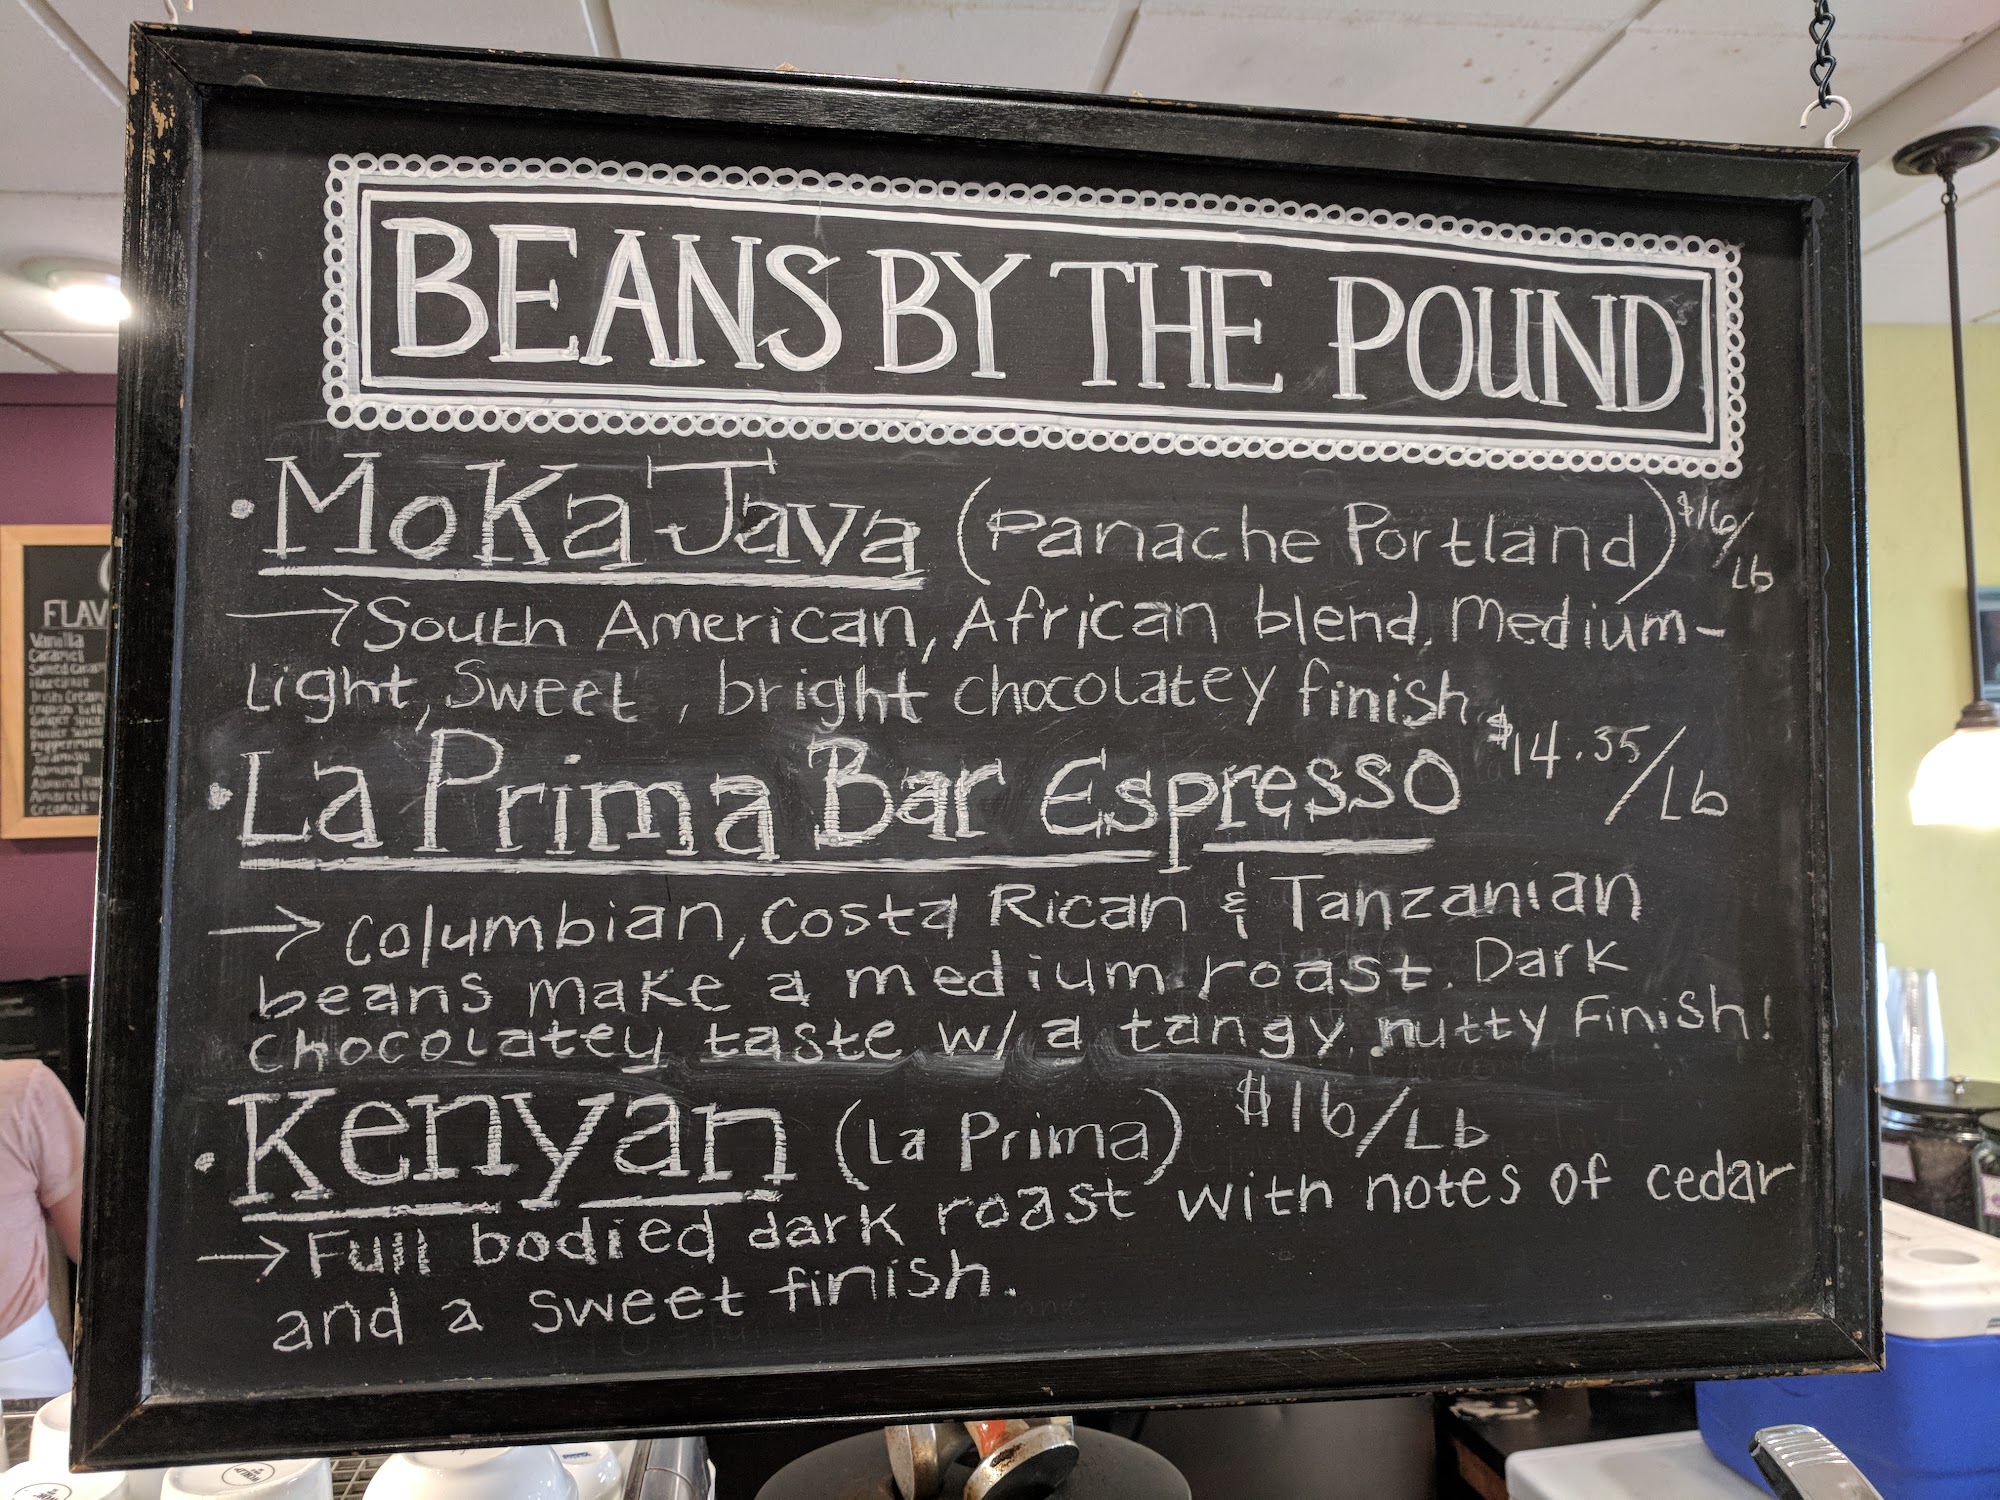 BEANS BY THE POUND
• Moka Java (Panache Portland) $16/Lb
→ South American, African blend, Medium-
Light, Sweet, bright chocolatey finish
• La Prima Bar Espresso $14.35/Lb
→ Columbian, Costa Rican & Tanzanian
beans make a medium roast. Dark
chocolatey taste w/ a tangy, nutty Finish!
• Kenyan (La Prima) $16/Lb
→ Full bodied dark roast with notes of cedar
and a sweet finish.
FLAV
Vanilla
Caramel
Salted Caram
Hazelnut
Irish Cream
Peppermint
Almond
Amaretto
Coconut